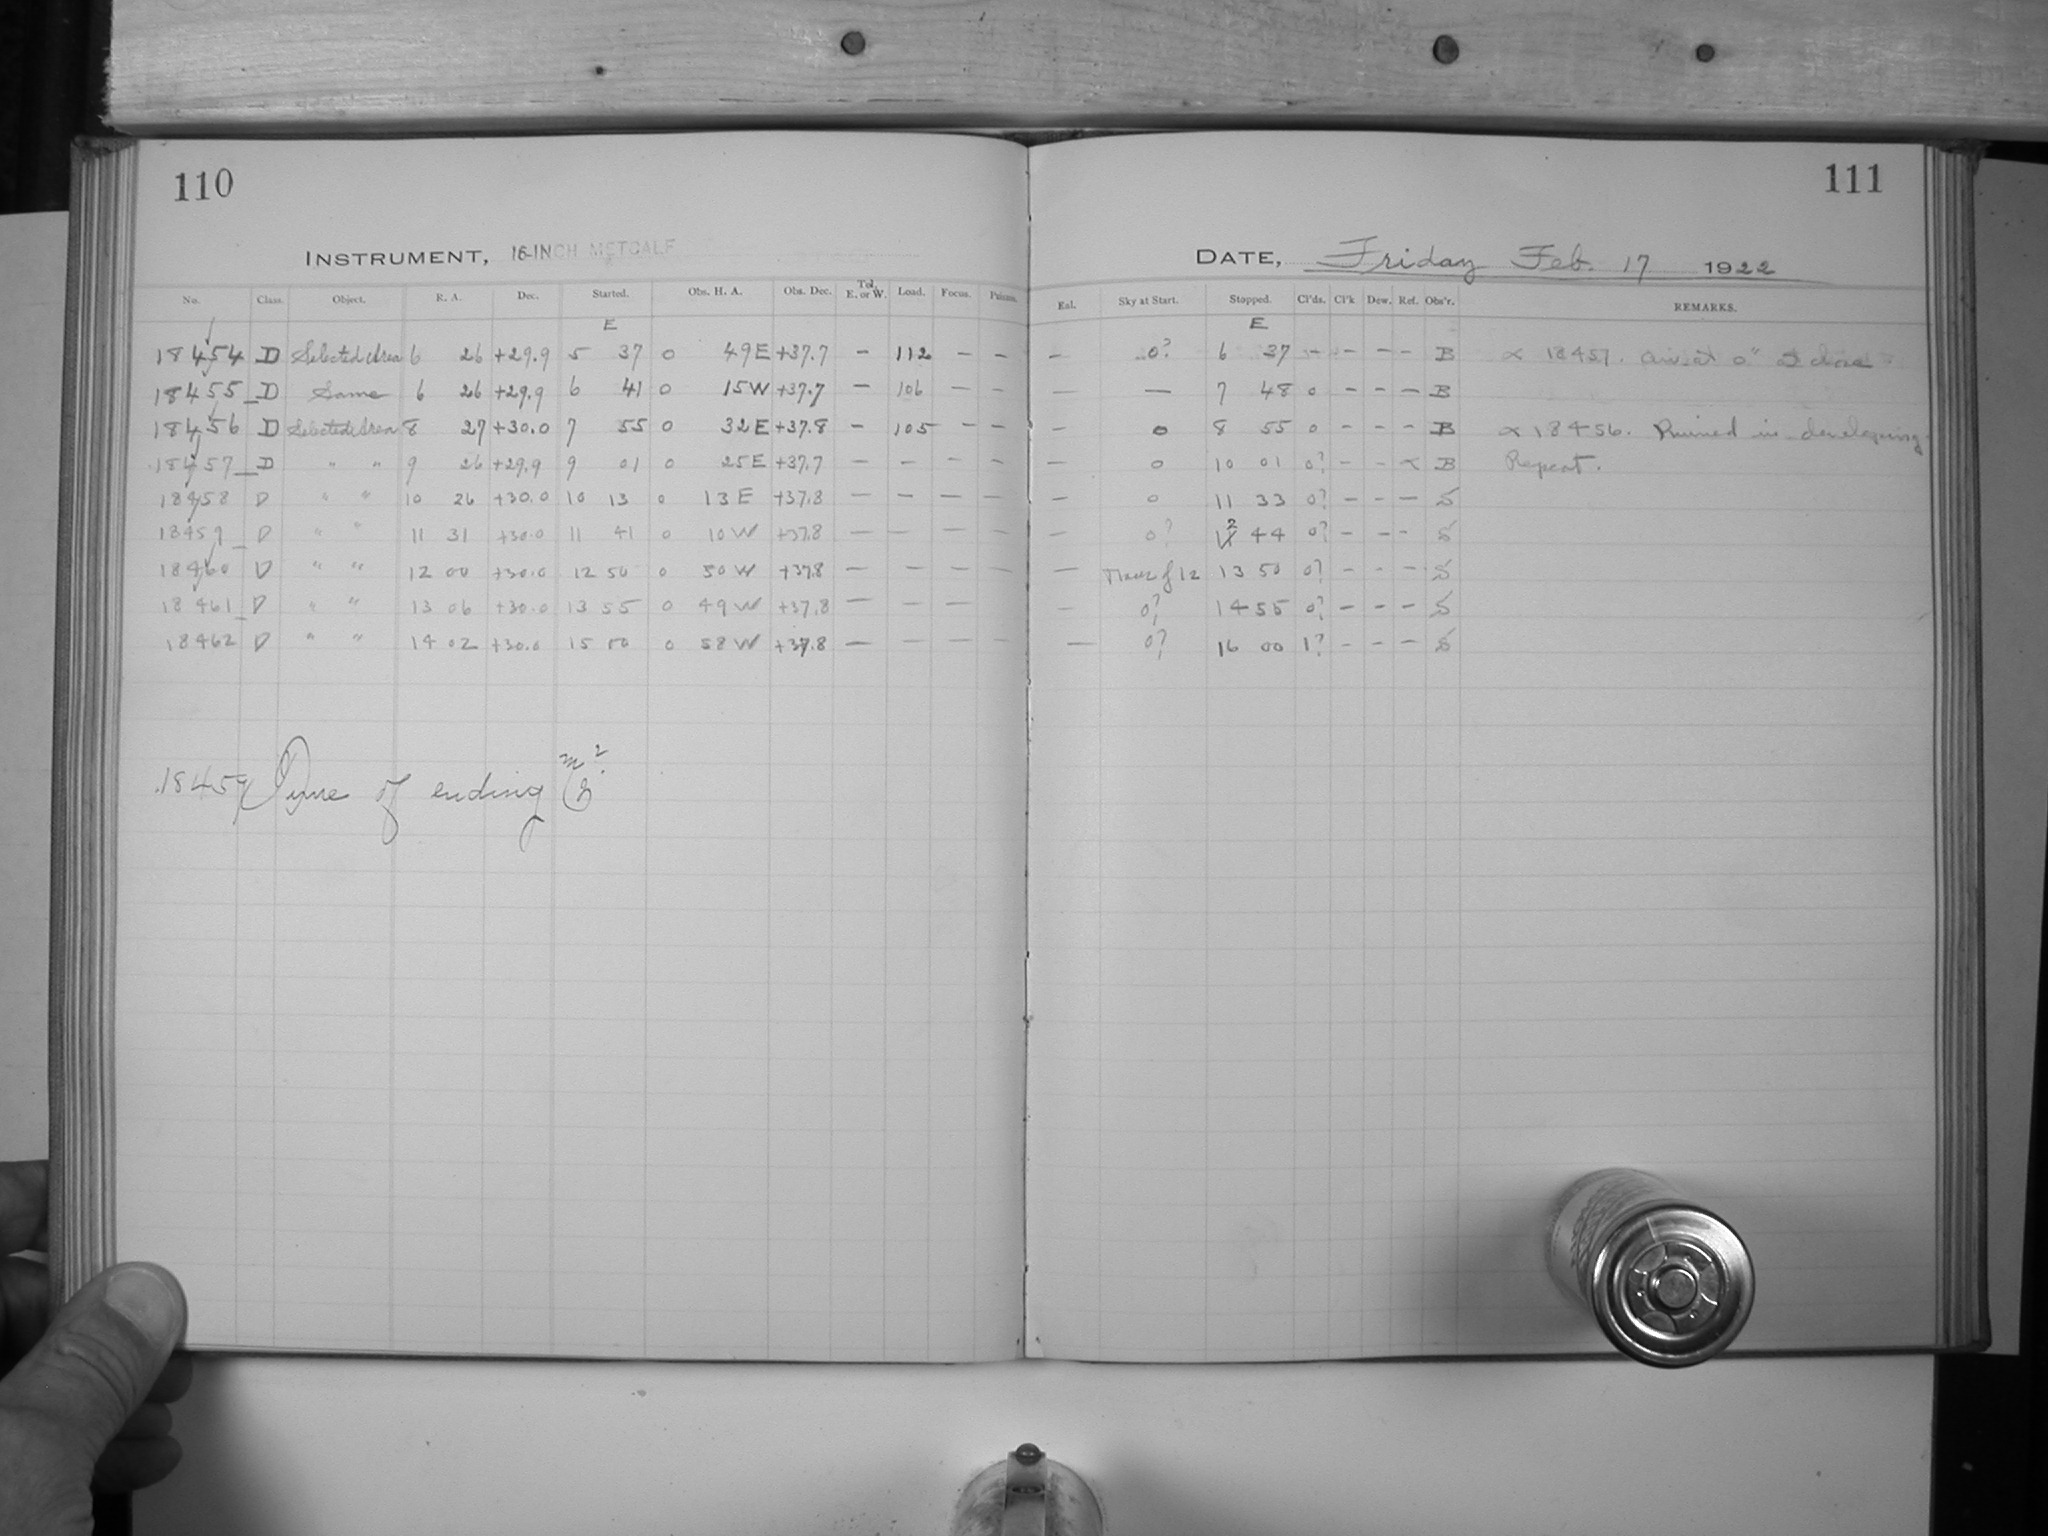 110
INSTRUMENT, 16-INCH METCALF
No. Class. Object. R. A. Dec. Started. Obs. H. A. Obs. Dec. Tel. E. or W. Load. Focus. Poisons.
E
18454 D Selected Area 6 26 +29.9 5 37 0 49 E +37.7 - 112 - -
18455 D Same 6 26 +29.9 6 41 0 15 W +37.7 - 106 - -
18456 D Selected Area 8 27 +30.0 7 55 0 32 E +37.8 - 105 - -
18457 D " " 9 26 +29.9 9 01 0 25 E +37.7 - - - -
18458 D " " 10 26 +30.0 10 13 0 13 E +37.8 - - - -
18459 D " " 11 31 +30.0 11 41 0 10 W +37.8 - - - -
18460 D " " 12 00 +30.0 12 50 0 50 W +37.8 - - - -
18461 D " " 13 06 +30.0 13 55 0 49 W +37.8 - - - -
18462 D " " 14 02 +30.0 15 00 0 58 W +37.8 - - - -
18459 Time of ending
111
DATE, Friday Feb. 17 1922
Sky at Start. Stopped. Cl'ds. Cl'k Dew. Ref. Obs'r. REMARKS.
E
- 0? 6 37 - - - - B 18457. at 0" at close
- - 7 48 0 - - - B
- 0 8 55 0 - - - B 18456. Ruined in developing
- 0 10 01 0? - - B Repeat.
- 0 11 33 0? - - - S
- 0? 12 44 0? - - - S
- of 12 13 50 0? - - - S
- 0? 14 55 0? - - - S
- 0? 16 00 1? - - - S